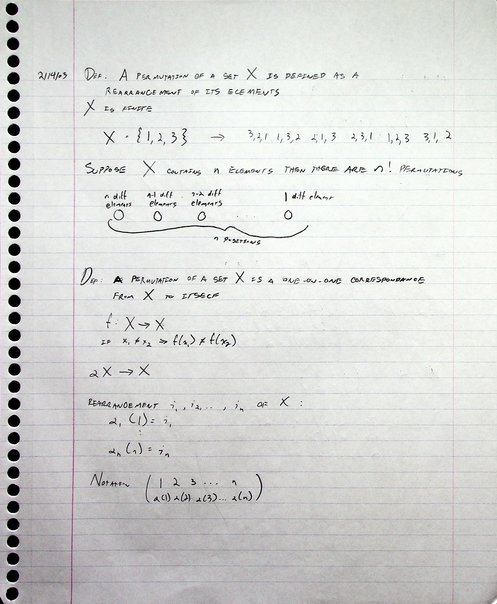 2/14/03 DEF: A PERMUTATION OF A SET X IS DEFINED AS A
REARRANGEMENT OF ITS ELEMENTS
X IS FINITE
X = {1, 2, 3} → 3,2,1 1,3,2 2,1,3 2,3,1 1,2,3 3,1,2
SUPPOSE X CONTAINS n ELEMENTS THEN THERE ARE n! PERMUTATIONS
n diff elements n-1 diff elements n-2 diff elements 1 diff element
n POSITIONS
DEF: A PERMUTATION OF A SET X IS A ONE-ON-ONE CORRESPONDANCE
FROM X TO ITSELF
f: X → X
IF x₁ ≠ x₂ ⇒ f(x₁) ≠ f(x₂)
2 X → X
REARRANGEMENT i₁, i₂, ..., iₙ OF X :
2₁ (1) = i₁
⋮
2ₙ (n) = iₙ
NOTATION ( 1 2 3 ... n
2(1) 2(2) 2(3) ... 2(n) )